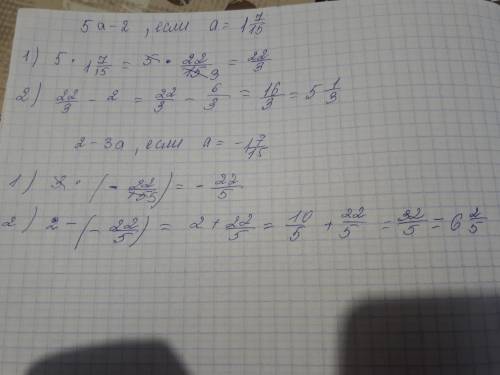 5a - 2 , если a = 1 7/15
1) 5 · 1 7/15 = 5 · 22/15 3 = 22/3
2) 22/3 - 2 = 22/3 - 6/3 = 16/3 = 5 1/3
2 - 3a , если a = - 1 7/15
1) 3 · (- 22/15 5) = - 22/5
2) 2 - (- 22/5) = 2 + 22/5 = 10/5 + 22/5 = 32/5 = 6 2/5